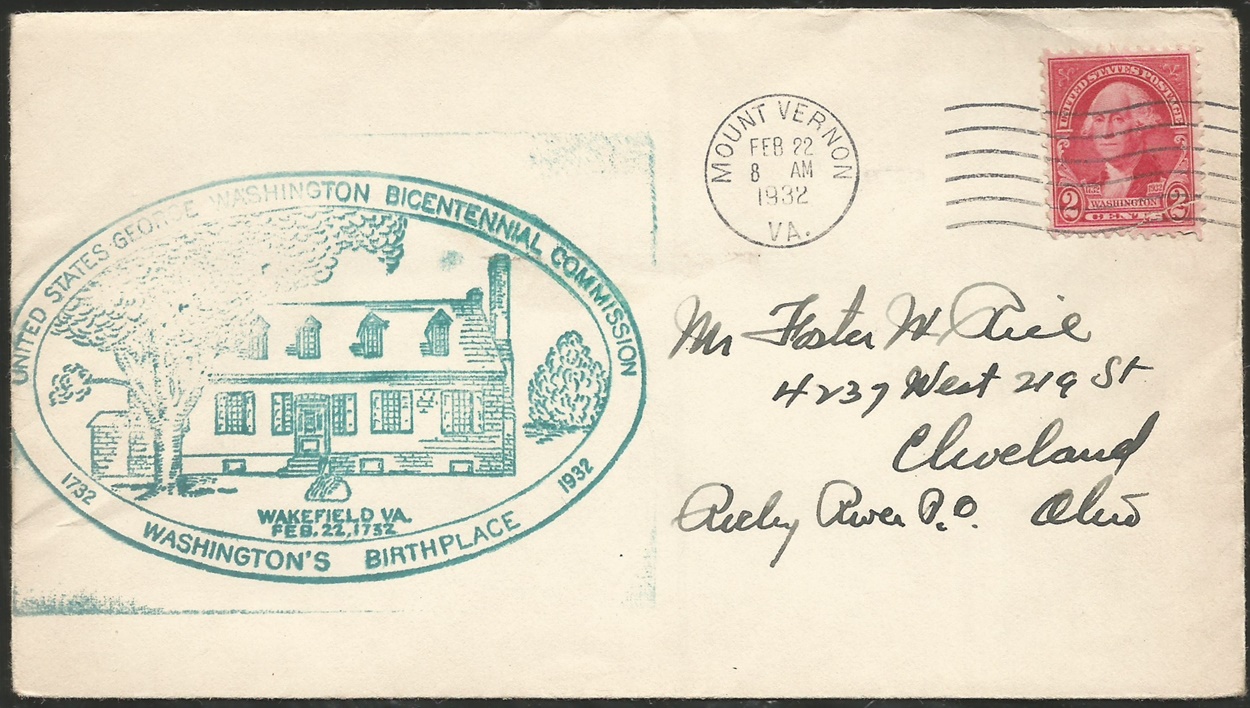 UNITED STATES GEORGE WASHINGTON BICENTENNIAL COMMISSION
1732
1932
WAKEFIELD VA.
FEB. 22, 1732
WASHINGTON'S BIRTHPLACE
MOUNT VERNON
FEB 22
8 AM
1932
VA.
UNITED STATES POSTAGE
2 WASHINGTON 2
CENTS
Mr Foster W. Rice
4237 West 219 St
Cleveland
Rocky River P.O. Ohio